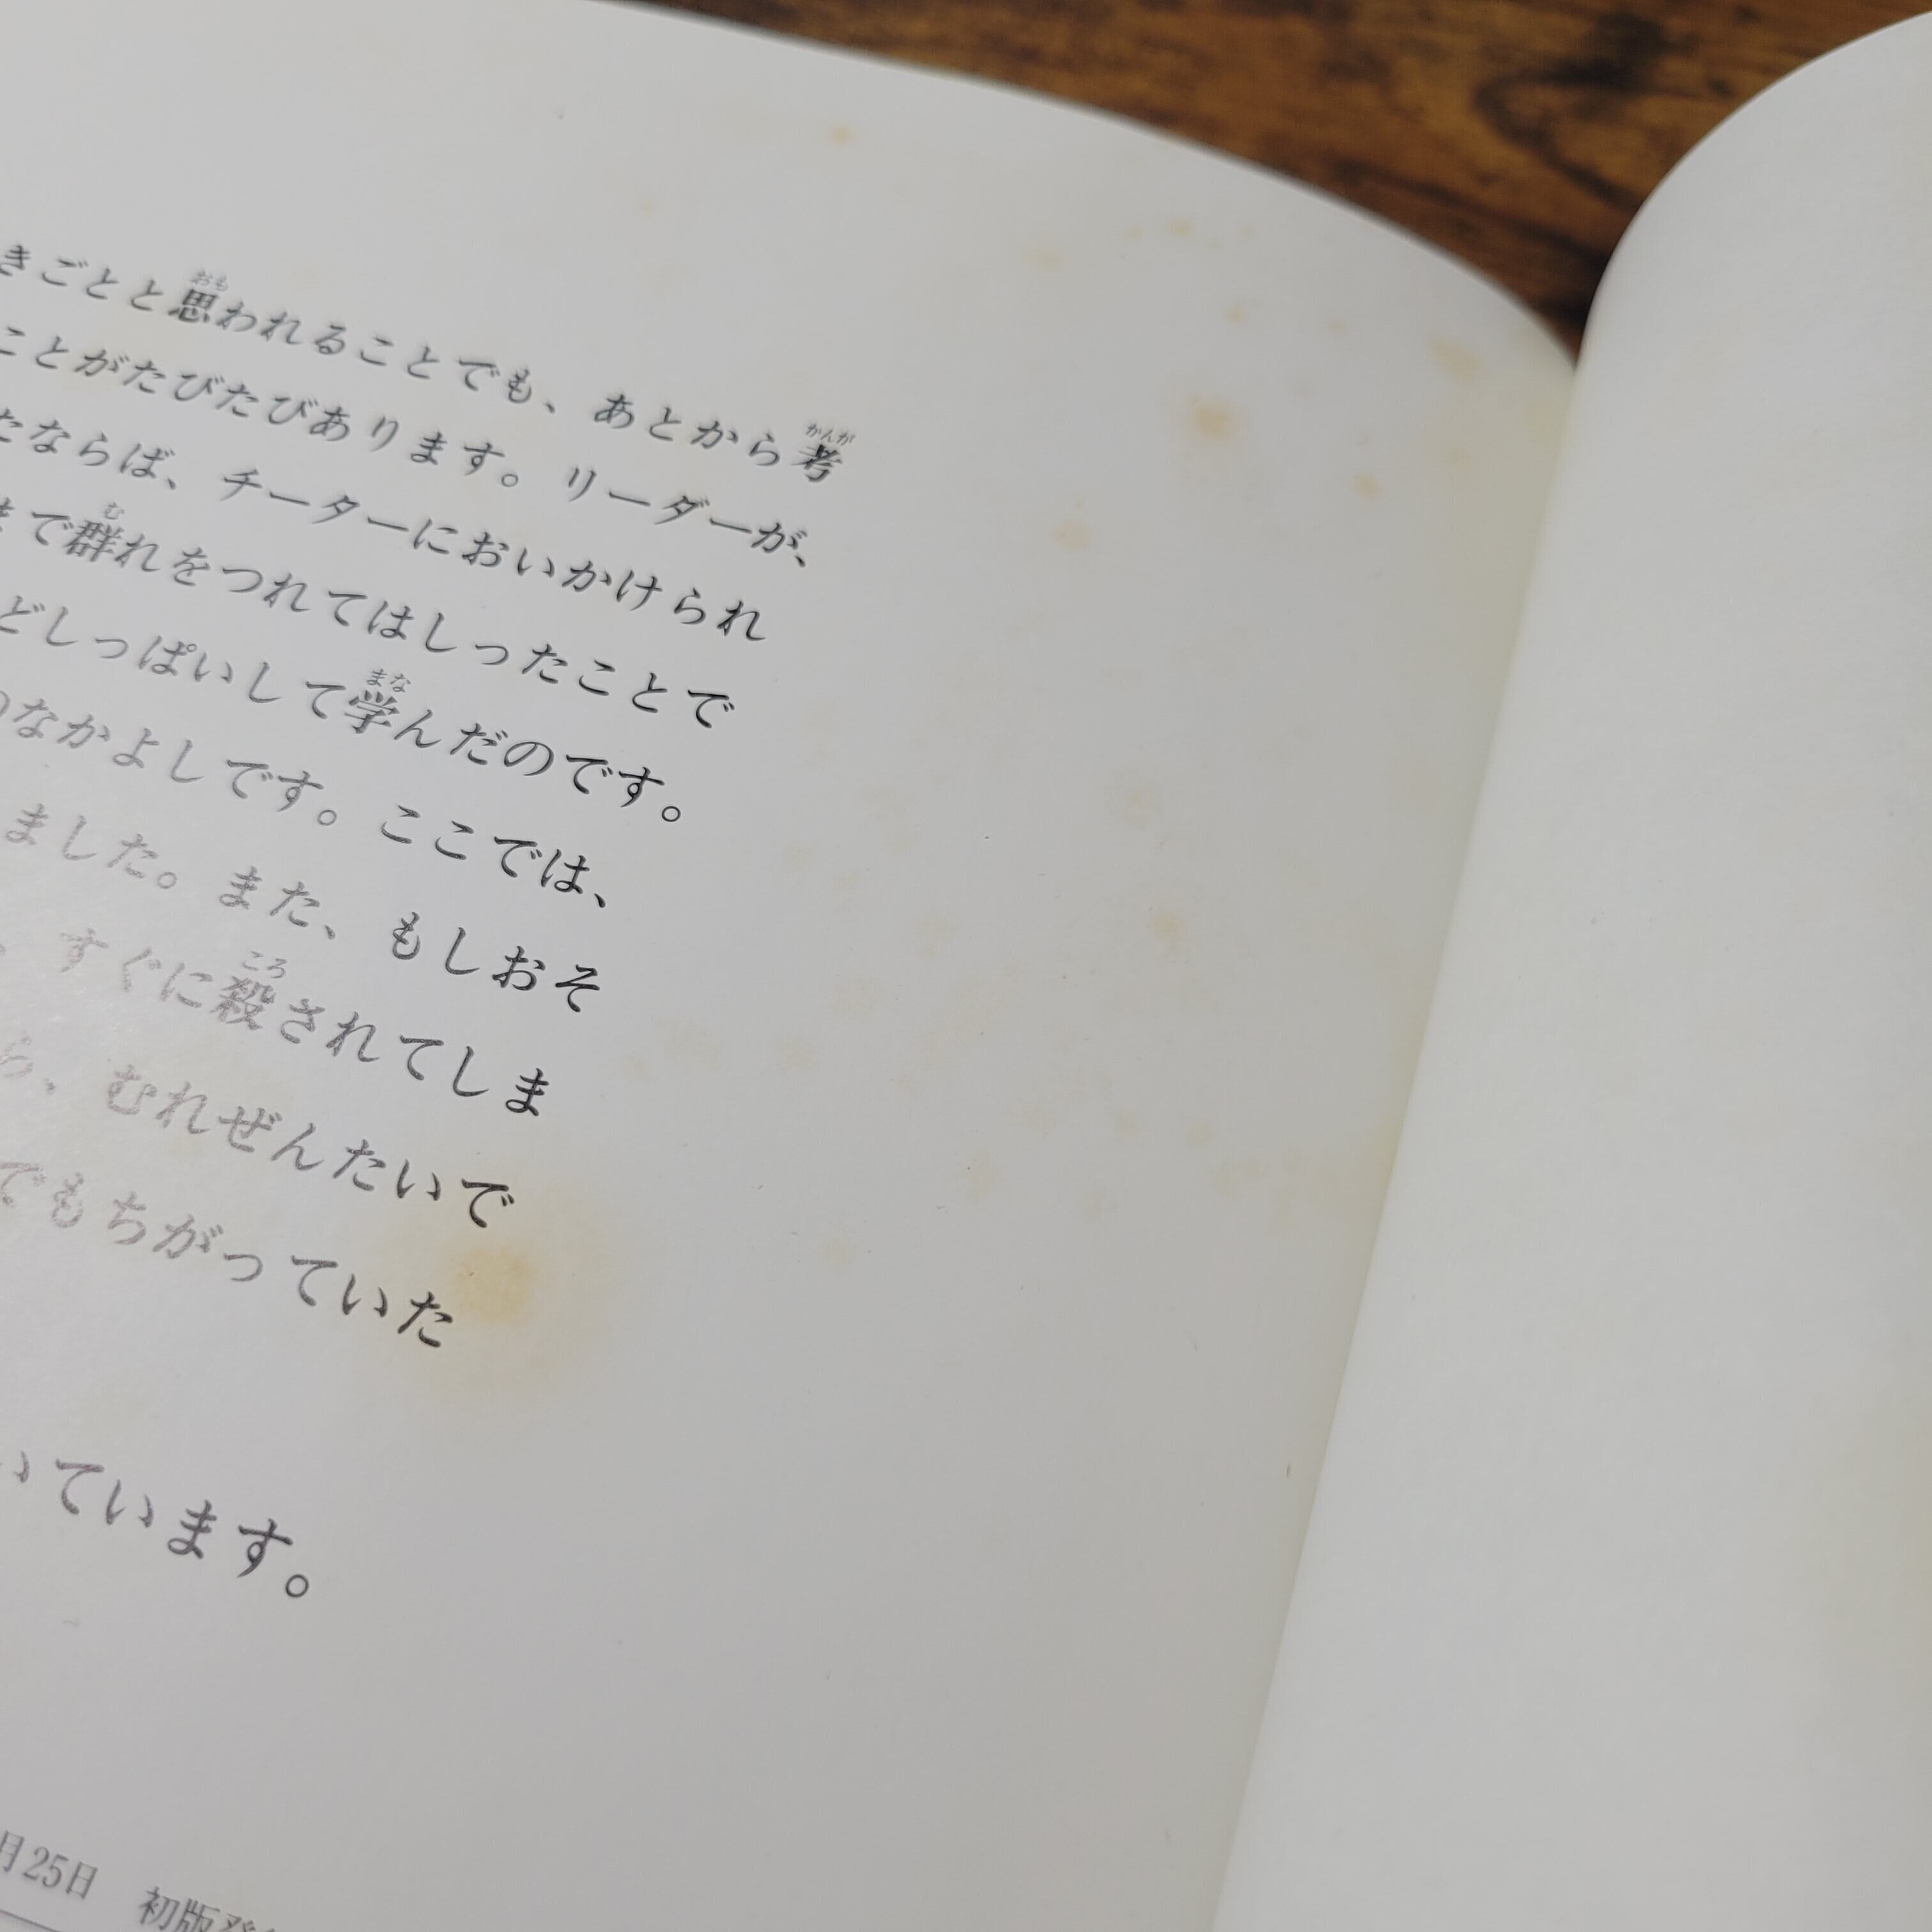 きごとと思われることでも、あとから考
ことがたびたびあります。リーダーが、
たならば、チーターにおいかけられ
まで群れをつれてはしったことで
どしっぱいして学んだのです。
のなかよしです。ここでは、
ました。また、もしおそ
、すぐに殺されてしま
ら、むれぜんたいで
でもちがっていた
いています。
月25日 初版発行